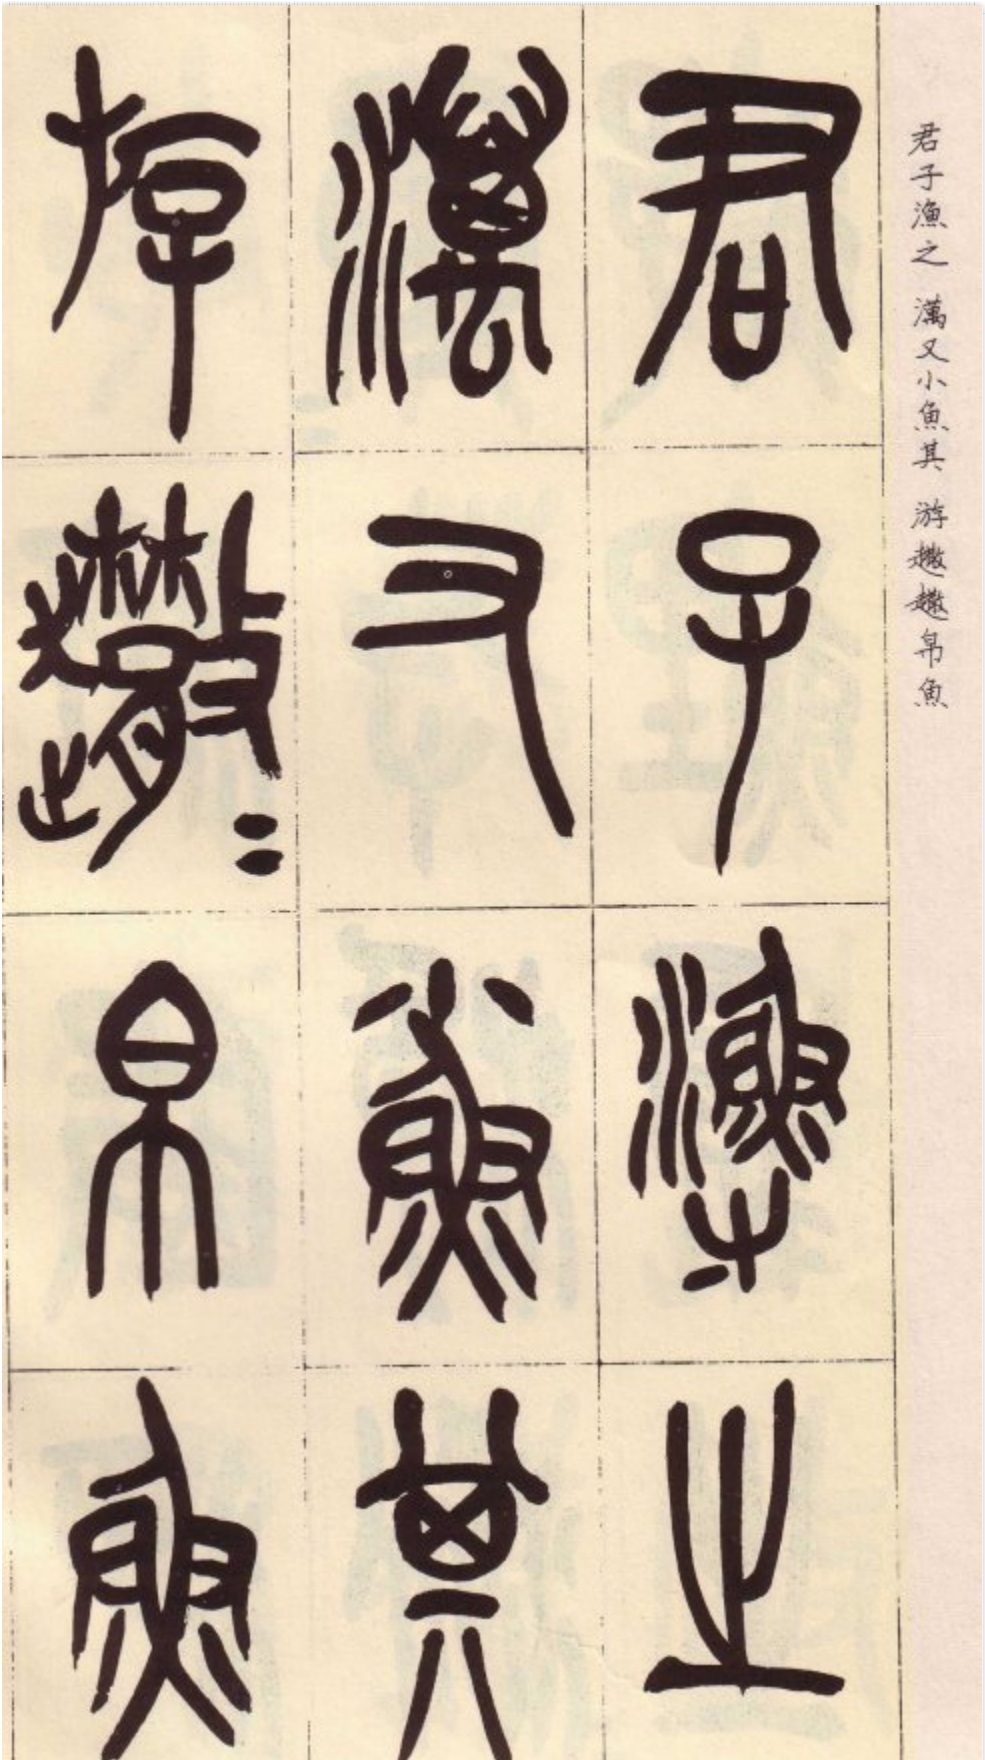 君子漁之 澫又小魚其 游帛魚
君子漁之
澫又小魚其
斿帛魚